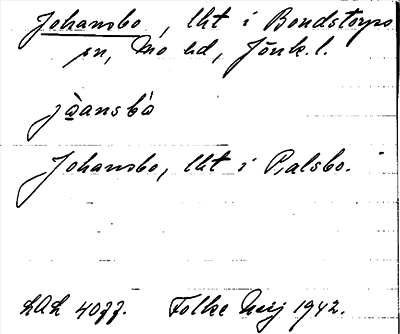 Johansbo, lht i Bondstorps
sn, Mo hd, Jönk. l.
jòansbó
Johansbo, lht i Palsbo.
LAL 4077. Folke Meij 1942.